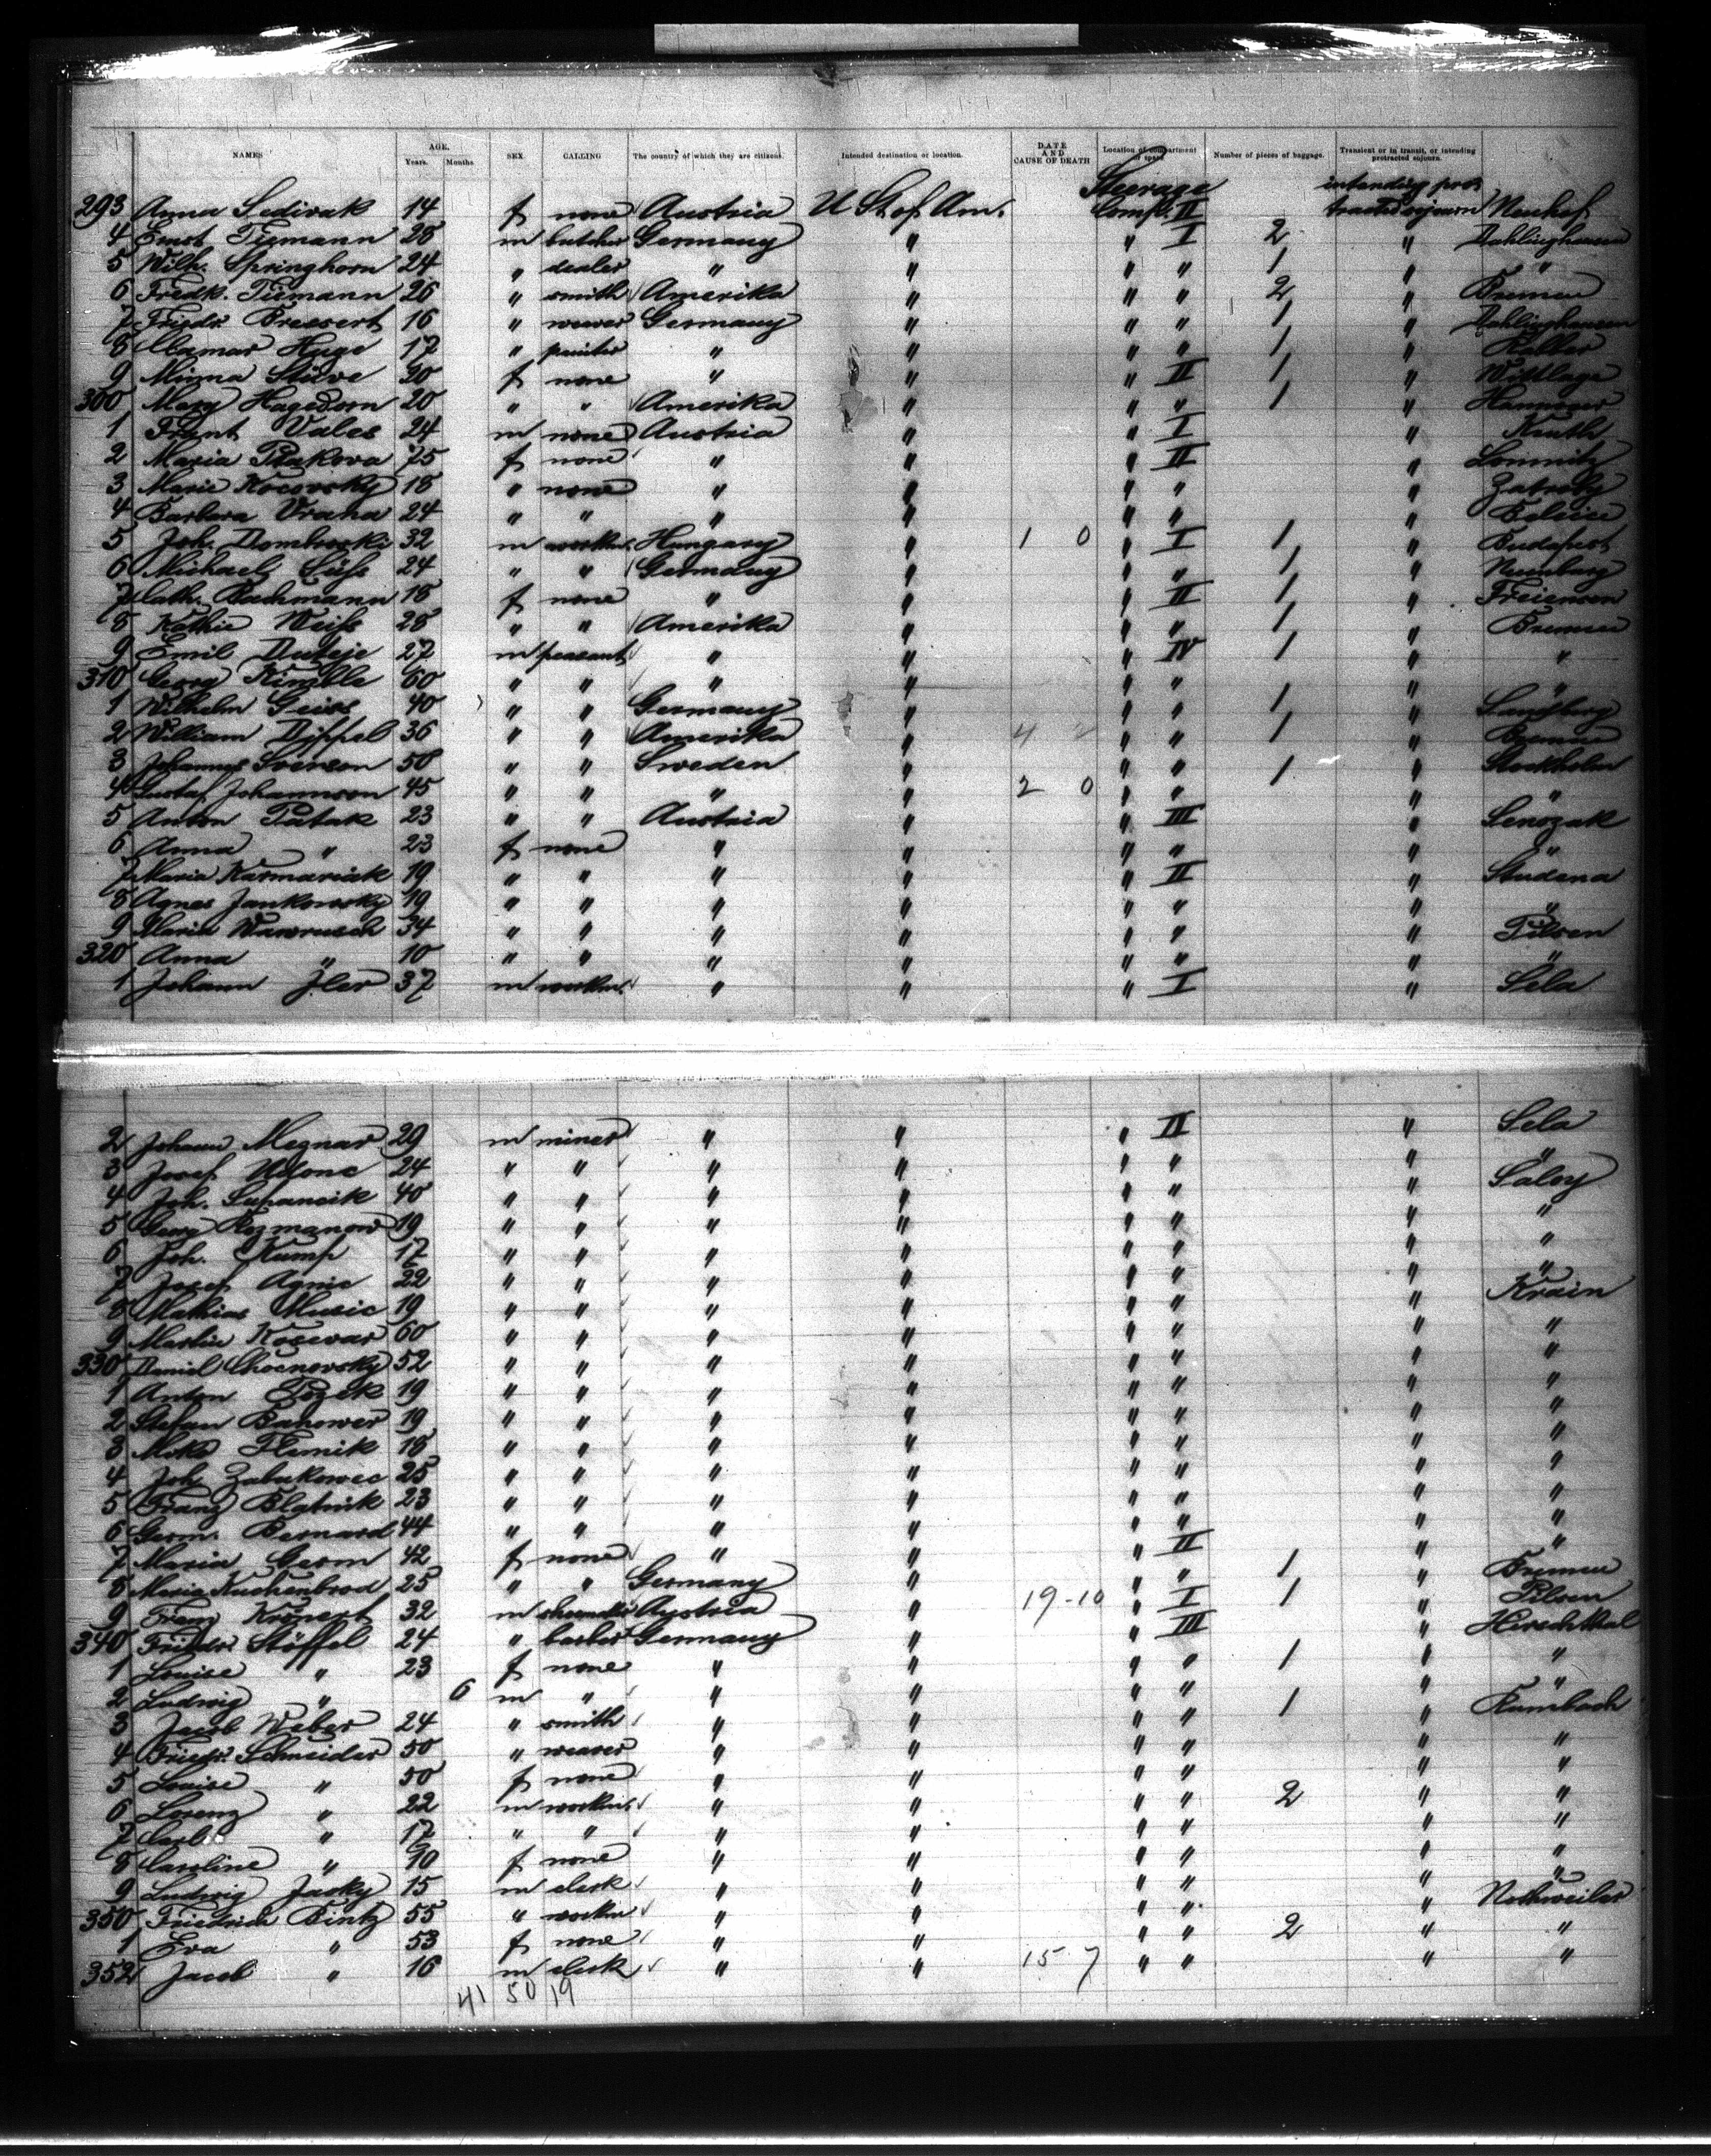 NAMES AGE. Years. Months. SEX CALLING The country of which they are citizens. Intended destination or location. DATE AND CAUSE OF DEATH Location of compartment or space Number of pieces of baggage. Transient or in transit, or intending protracted sojourn.
Steerage intending pro-
293 Anna Sedivak 14 f none Austria U St. of Am. Comp. II tracted sojourn Neuhof
4 Ernst Tiemann 28 m butcher Germany " " I 2 " Dahlinghausen
5 Wilh. Springhorn 24 " dealer " " " " 1 " "
6 Fredk. Tiemann 26 " smith Amerika " " " 2 " Bremen
7 Friedr. Bressert 16 " weaver Germany " " " 1 " Dahlinghausen
8 Clamar Huge 17 " painter " " " " 1 "
9 Minna Stüve 20 f none " " " II 1 " Wittlage
300 Mary Hagedorn 20 " " Amerika " " " 1 " Hannover
1 Frant Vales 24 m none Austria " " I "
2 Maria Ptakova 75 f none " " " II " Lomnitz
3 Marie Kocovsky 18 " none " " " " "
4 Barbara Vrana 24 " " " " " " "
5 Joh. Dombrocki 32 m workm. Hungary " 1 0 " I 1 " Budapest
6 Michael Süss 24 " " Germany " " " 1 "
7 Cath. Bachmann 18 f none " " " II 1 " Freiensen
8 Kathie Weiss 28 " " Amerika " " " 1 " Bremen
9 Emil Duteje 27 m peasant " " " IV 1 " "
310 Georg 60 " " " " " " " "
1 Wilhelm Geiss 40 " " Germany " " " 1 "
2 William Dippel 36 " " Amerika " 4 2 " " 1 " Bremen
3 Johannes Svenson 50 " " Sweden " " " 1 " Stockholm
4 Gustaf Johannson 45 " " " " 2 0 " " " "
5 Anton Patak 23 " " Austria " " III " Senozak
6 Anna " 23 f none " " " " " "
7 Maria Kasmariak 19 " " " " " II " Studena
8 Agnes Jankowsky 19 " " " " " " " "
9 Maria Wawrusch 34 " " " " " " " Pilsen
320 Anna " 10 " " " " " " " "
1 Johann Jler 37 m workm. " " " I " Sela
2 Johann Megnar 29 m miner " " " II " Sela
3 Josef 24 " " " " " " " "
4 Joh. Supancik 40 " " " " " " " Saloy
5 Georg Rozmanow 19 " " " " " " " "
6 Joh. Kump 17 " " " " " " " "
7 Josef Agnic 22 " " " " " " " "
8 Mathias Music 19 " " " " " " " Krain
9 Martin Kosewar 60 " " " " " " " "
330 Daniel Chocnovsky 52 " " " " " " " "
1 Anton 19 " " " " " " " "
2 Stefan Banower 19 " " " " " " " "
3 Mike Flemik 18 " " " " " " " "
4 Joh. Zabukowec 25 " " " " " " " "
5 Franz Blatnik 23 " " " " " " " "
6 Germ. Bernard 44 " " " " " " " "
7 Maria Germ 42 f none " " " II " "
8 Maria Kuchenbrod 25 " " Germany " " " 1 " Bremen
9 Franz Krönert 32 m Austria " 19-10 " I 1 " Pilsen
340 Friedr. Stöffel 24 " barber Germany " " III " Hirschthal
1 Louise " 23 f none " " " " 1 " "
2 Ludwig " 6 m " " " " " " "
3 Jacob Weber 24 " smith " " " " 1 " Rumbach
4 Friedr. Schneider 50 " weaver " " " " " "
5 Louise " 50 f none " " " " " "
6 Lorenz " 22 m workm. " " " " 2 " "
7 Carl " 17 " " " " " " " "
8 Caroline " 10 f none " " " " " "
9 Ludwig Jacky 15 m clerk " " " " " "
350 Friedrich Bintz 55 " workm " " " " " Nothweiler
1 Eva " 53 f none " " " " 2 " "
352 Jacob " 16 m clerk " " 15 7 " " " "
41 50 19